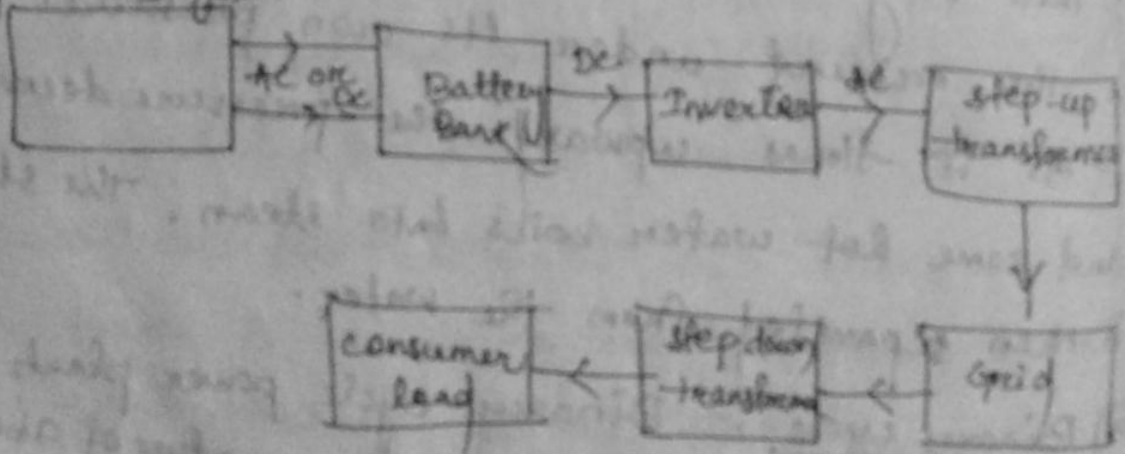 AC or
DC
Battery
Bank
DC
Inverter
AC
step-up
transformer
Grid
step down
transformer
consumer
load